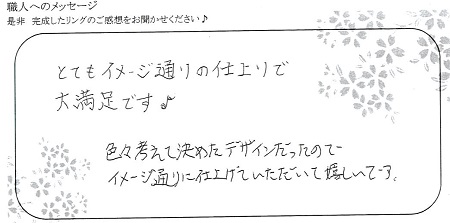 職人へのメッセージ
是非 完成したリングのご感想をお聞かせください♪
とてもイメージ通りの仕上りで
大満足です♪
色々考えて決めたデザインだったので
イメージ通りに仕上げていただいて嬉しいです。